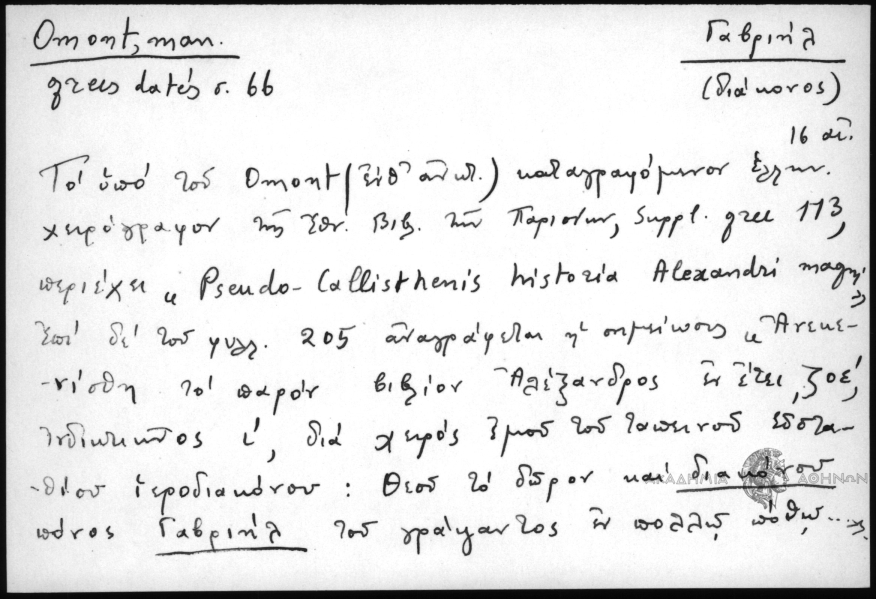 Omont, man. Γαβριήλ
grecs datés σ. 66 (διάκονος)
16 αἰ.
Τό ὑπό τοῦ Omont (ἔνθ' ἀνωτ.) καταγραφόμενον ἑλλην.
χειρόγραφον τῆς Ἐθν. Βιβ. τῶν Παρισίων, Suppl. grec 113,
περιέχει „Pseudo-Callisthenis historia Alexandri magni“
Ἐπί δέ τοῦ φυλλ. 205 ἀναγράφεται ἡ σημείωσις „Ἀνεκε-
-νίσθη τό παρόν βιβλίον Ἀλέξανδρος ἐν ἔτει ͵ζοέ,
ἰνδικτιῶνος ί, διά χειρός ἐμοῦ τοῦ ταπεινοῦ Εὐστα-
-θίου ἱεροδιακόνου : Θεοῦ τό δῶρον καί διακόνου
πόνος Γαβριήλ τοῦ γράψαντος ἐν πολλῷ πόθῳ...“
ΑΚΑΔΗΜΙΑ ΑΘΗΝΩΝ